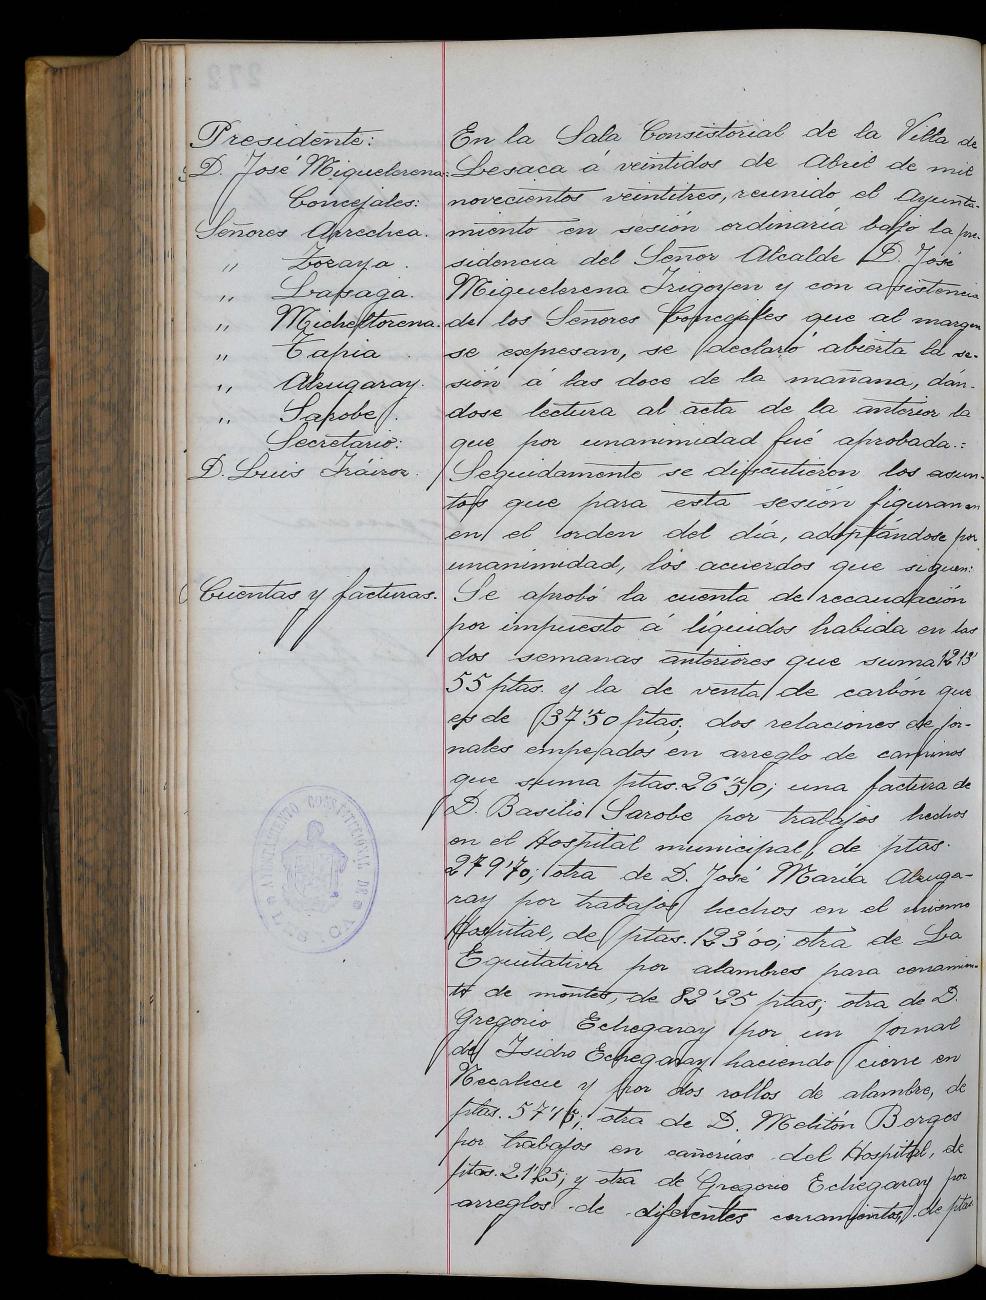 Presidente:
D. José Miguelerena.
Concejales:
Señores Arrechea.
" Zozaya.
" Lapaga.
" Micheltorena.
" Tapia.
" Alzugaray.
" Sarobe.
Secretario:
D. Luis Iráizoz.
En la Sala Consistorial de la Villa de
Lesaca á veintidos de Abril de mil
novecientos veintitres, reunido el Ayunta-
miento en sesión ordinaria bajo la pre-
sidencia del Señor Alcalde D. José
Miguelerena Irigoyen y con asistencia
de los Señores Concejales que al margen
se expresan, se declaró abierta la se-
sión á las doce de la mañana, dán-
dose lectura al acta de la anterior la
que por unanimidad fué aprobada.:
Seguidamente se discutieron los asun-
tos que para esta sesión figuran en
en el orden del día, adoptándose por
unanimidad, los acuerdos que siguen:
Cuentas y facturas.
Se aprobó la cuenta de recaudación
por impuesto á líquidos habida en las
dos semanas anteriores que suma 1213'
55 ptas. y la de venta de carbón que
es de 37'50 ptas; dos relaciones de jor-
nales empeados en arreglo de caminos
que suma ptas. 26'50; una factura de
D. Basilio Sarobe por trabajos hechos
en el Hospital municipal, de ptas.
279'70; otra de D. José María Alzuga-
ray por trabajos hechos en el mismo
Hospital, de ptas. 123'00; otra de La
Equitativa por alambres para cerramien-
to de montes, de 82'25 ptas; otra de D.
Gregorio Echegaray por un jornal
de Isidro Echegaray haciendo cierre en
y por dos rollos de alambre, de
ptas. 57'15; otra de D. Melitón Borges
por trabajos en cañerías del Hospital, de
ptas. 21'25; y otra de Gregorio Echegaray por
arreglos de diferentes cerramientos, de ptas.
AYUNTAMIENTO CONSTITUCIONAL DE